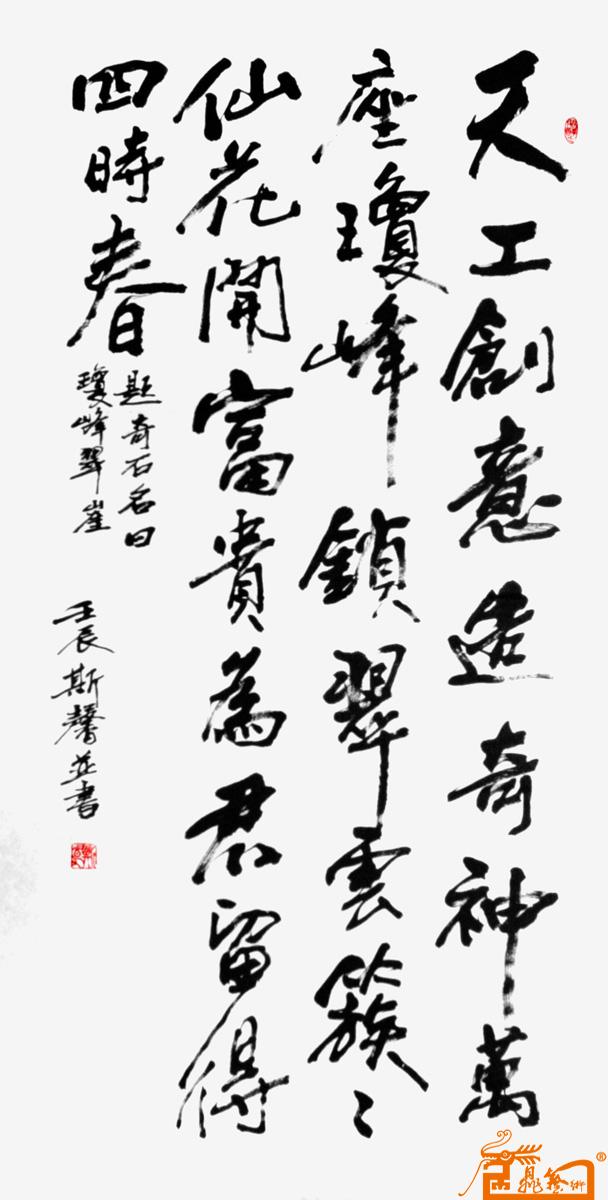 天工創意造奇神萬
座瓊峰鎖翠雲簇〻
仙花開富貴為君留得
四時春
題奇石名曰
瓊峰翠崖
壬辰斯馨並書